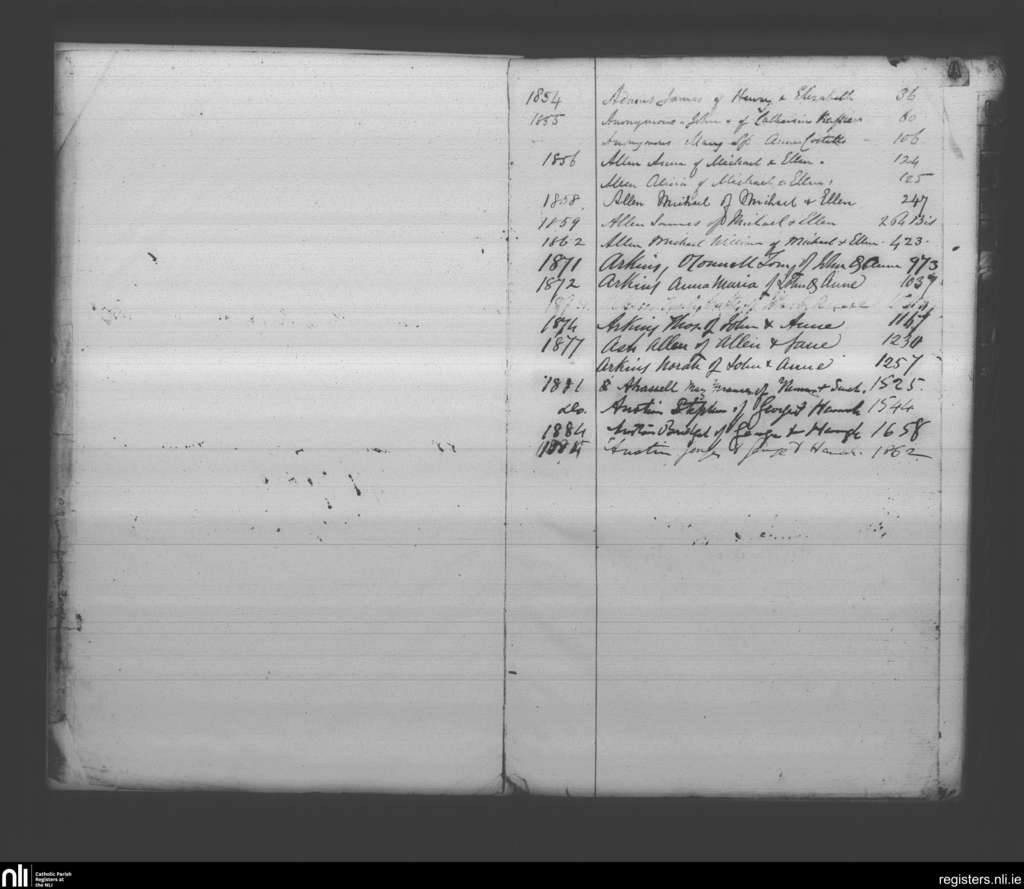 A
1854 Adams James of Henry & Elizabeth 36
1855 Anonymous - John - of Catharine 60
Anonymous Mary Anne Costello 106
1856 Allen Anne of Michael & Ellen. 124
Allen Alicia of Michael & Ellen 125
1858. Allen Michael of Michael & Ellen 247
1859 Allen James of Michael & Ellen 264 Bis
1862 Allen Michael William of Michael & Ellen - 423 -
1871 Arkins, O'Connell of John & Anne 973
1872 Arkins Anna Maria of John & Anne 1037
1874 Arkins Thos. of John & Anne 1167
1877 Ash Allen of Allen & Jane 1230
Arkins Norah of John & Anne 1257
1881 of Thomas & 1525
do. Austin Stephen of George & Hannah 1544
1884 Austin Bridget of George & 1658
Austin of George & 1862
nli Catholic Parish Registers at the NLI
registers.nli.ie